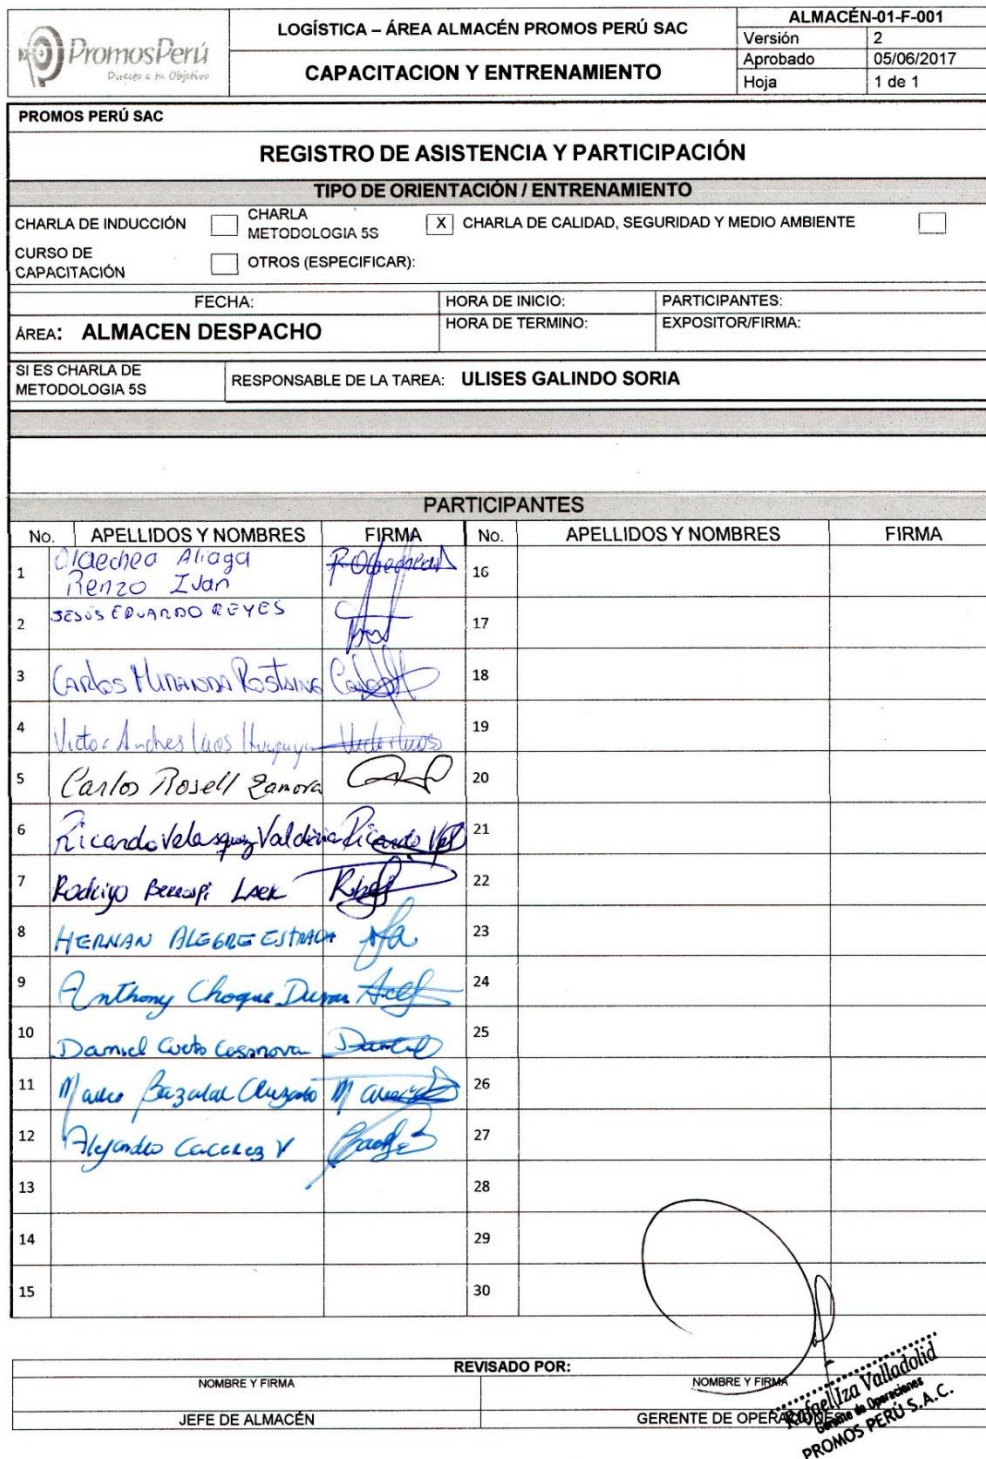 PromosPerú
Directo a tu Objetivo
LOGÍSTICA – ÁREA ALMACÉN PROMOS PERÚ SAC
CAPACITACION Y ENTRENAMIENTO
ALMACÉN-01-F-001
Versión 2
Aprobado 05/06/2017
Hoja 1 de 1
PROMOS PERÚ SAC
REGISTRO DE ASISTENCIA Y PARTICIPACIÓN
TIPO DE ORIENTACIÓN / ENTRENAMIENTO
CHARLA DE INDUCCIÓN
CHARLA
METODOLOGIA 5S
X
CHARLA DE CALIDAD, SEGURIDAD Y MEDIO AMBIENTE
CURSO DE
CAPACITACIÓN
OTROS (ESPECIFICAR):
FECHA:
HORA DE INICIO:
PARTICIPANTES:
ÁREA: ALMACEN DESPACHO
HORA DE TERMINO:
EXPOSITOR/FIRMA:
SI ES CHARLA DE
METODOLOGIA 5S
RESPONSABLE DE LA TAREA: ULISES GALINDO SORIA
PARTICIPANTES
No. APELLIDOS Y NOMBRES FIRMA No. APELLIDOS Y NOMBRES FIRMA
1 Olaechea Aliaga
Renzo Ivan
16
2 JESÚS EDUARDO REYES 17
3 Carlos Miranda 18
4 Victor Andres 19
5 Carlos Rosell Zamora 20
6 Ricardo Velasquez Valdivia 21
7 Rodrigo 22
8 HERNAN ALEGRE ESTRADA 23
9 Anthony Choque 24
10 Daniel Cueto Casanova 25
11 26
12 Alejandro Cacerez V 27
13 28
14 29
15 30
REVISADO POR:
NOMBRE Y FIRMA
NOMBRE Y FIRMA
JEFE DE ALMACÉN
GERENTE DE OPERACIONES
Rafael Iza Valladolid
Gerente de Operaciones
PROMOS PERÚ S.A.C.